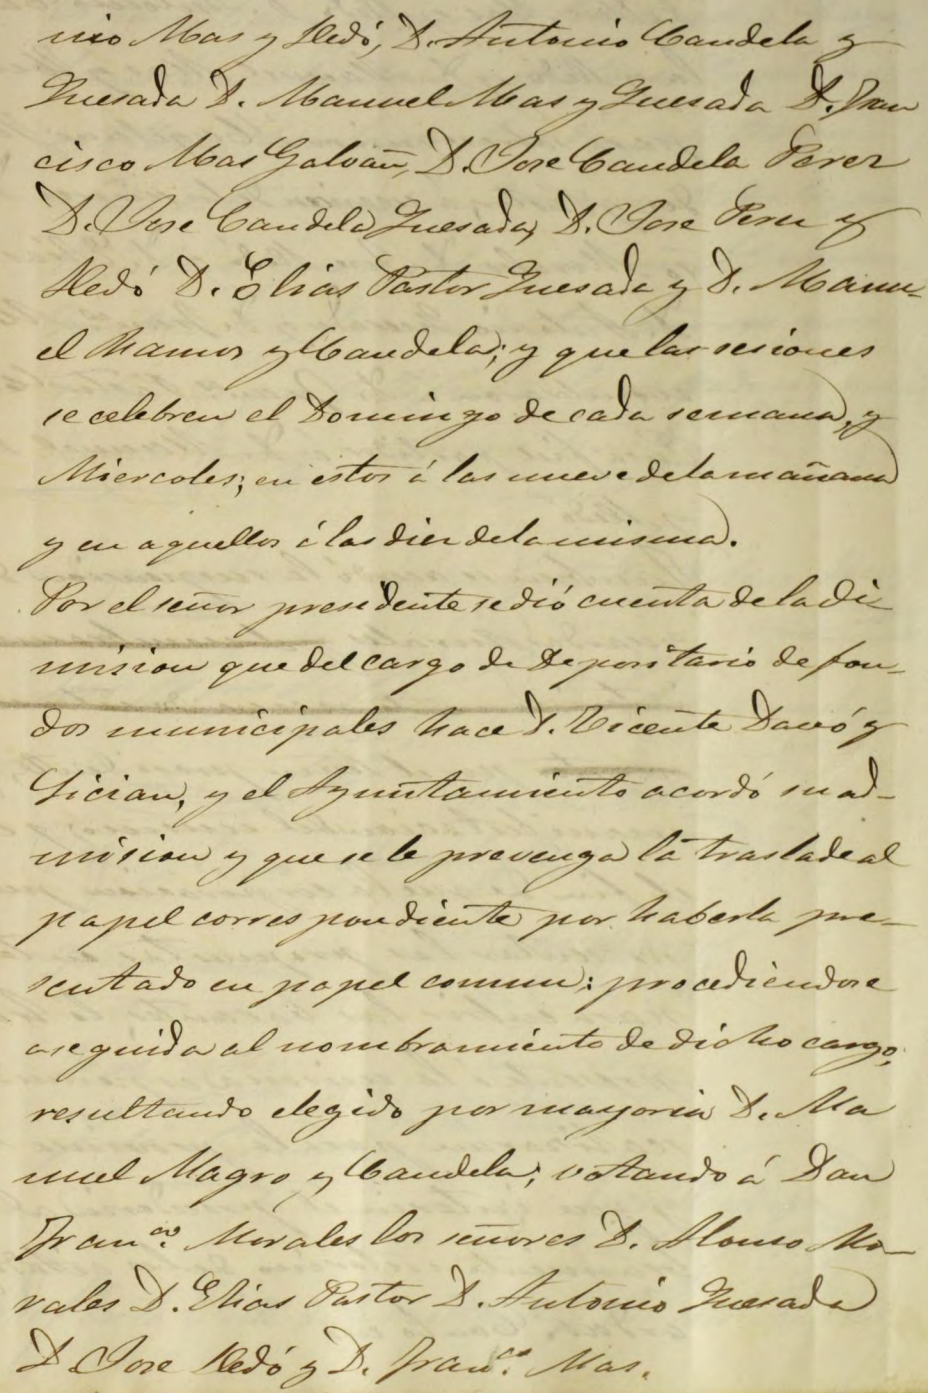 nio Mas y Lledó, D. Antonio Candela y
Quesada D. Manuel Mas y Quesada D. Fran
cisco Mas Galvañ, D. Jose Candela Perez
D. Jose Candela Quesada, D. Jose Peru y
Lledó D. Elias Pastor Quesada y D. Manu-
el Ramos y Candela; y que las sesiones
se celebren el Domingo de cada semana, y
Miercoles; en estos á las nueve de la mañana
y en aquellos á las diez de la misma.
Por el señor presidente se dió cuenta de la di-
mision que del cargo de Depositario de fon-
dos municipales hace D. Vicente Davó y
Sician, y el Ayuntamiento acordó su ad-
mision y que se le prevenga la traslade al
papel correspondiente por haberla pre-
sentado en papel comun: procediendose
aseguida al nombramiento de dicho cargo;
resultando elegido por mayoria D. Ma
nuel Magro y Candela; votando á Don
Fran.co Morales los señores D. Alonso Mo-
rales D. Elias Pastor D. Antonio Quesada
D. Jose Lledó y D. Fran.co Mas.